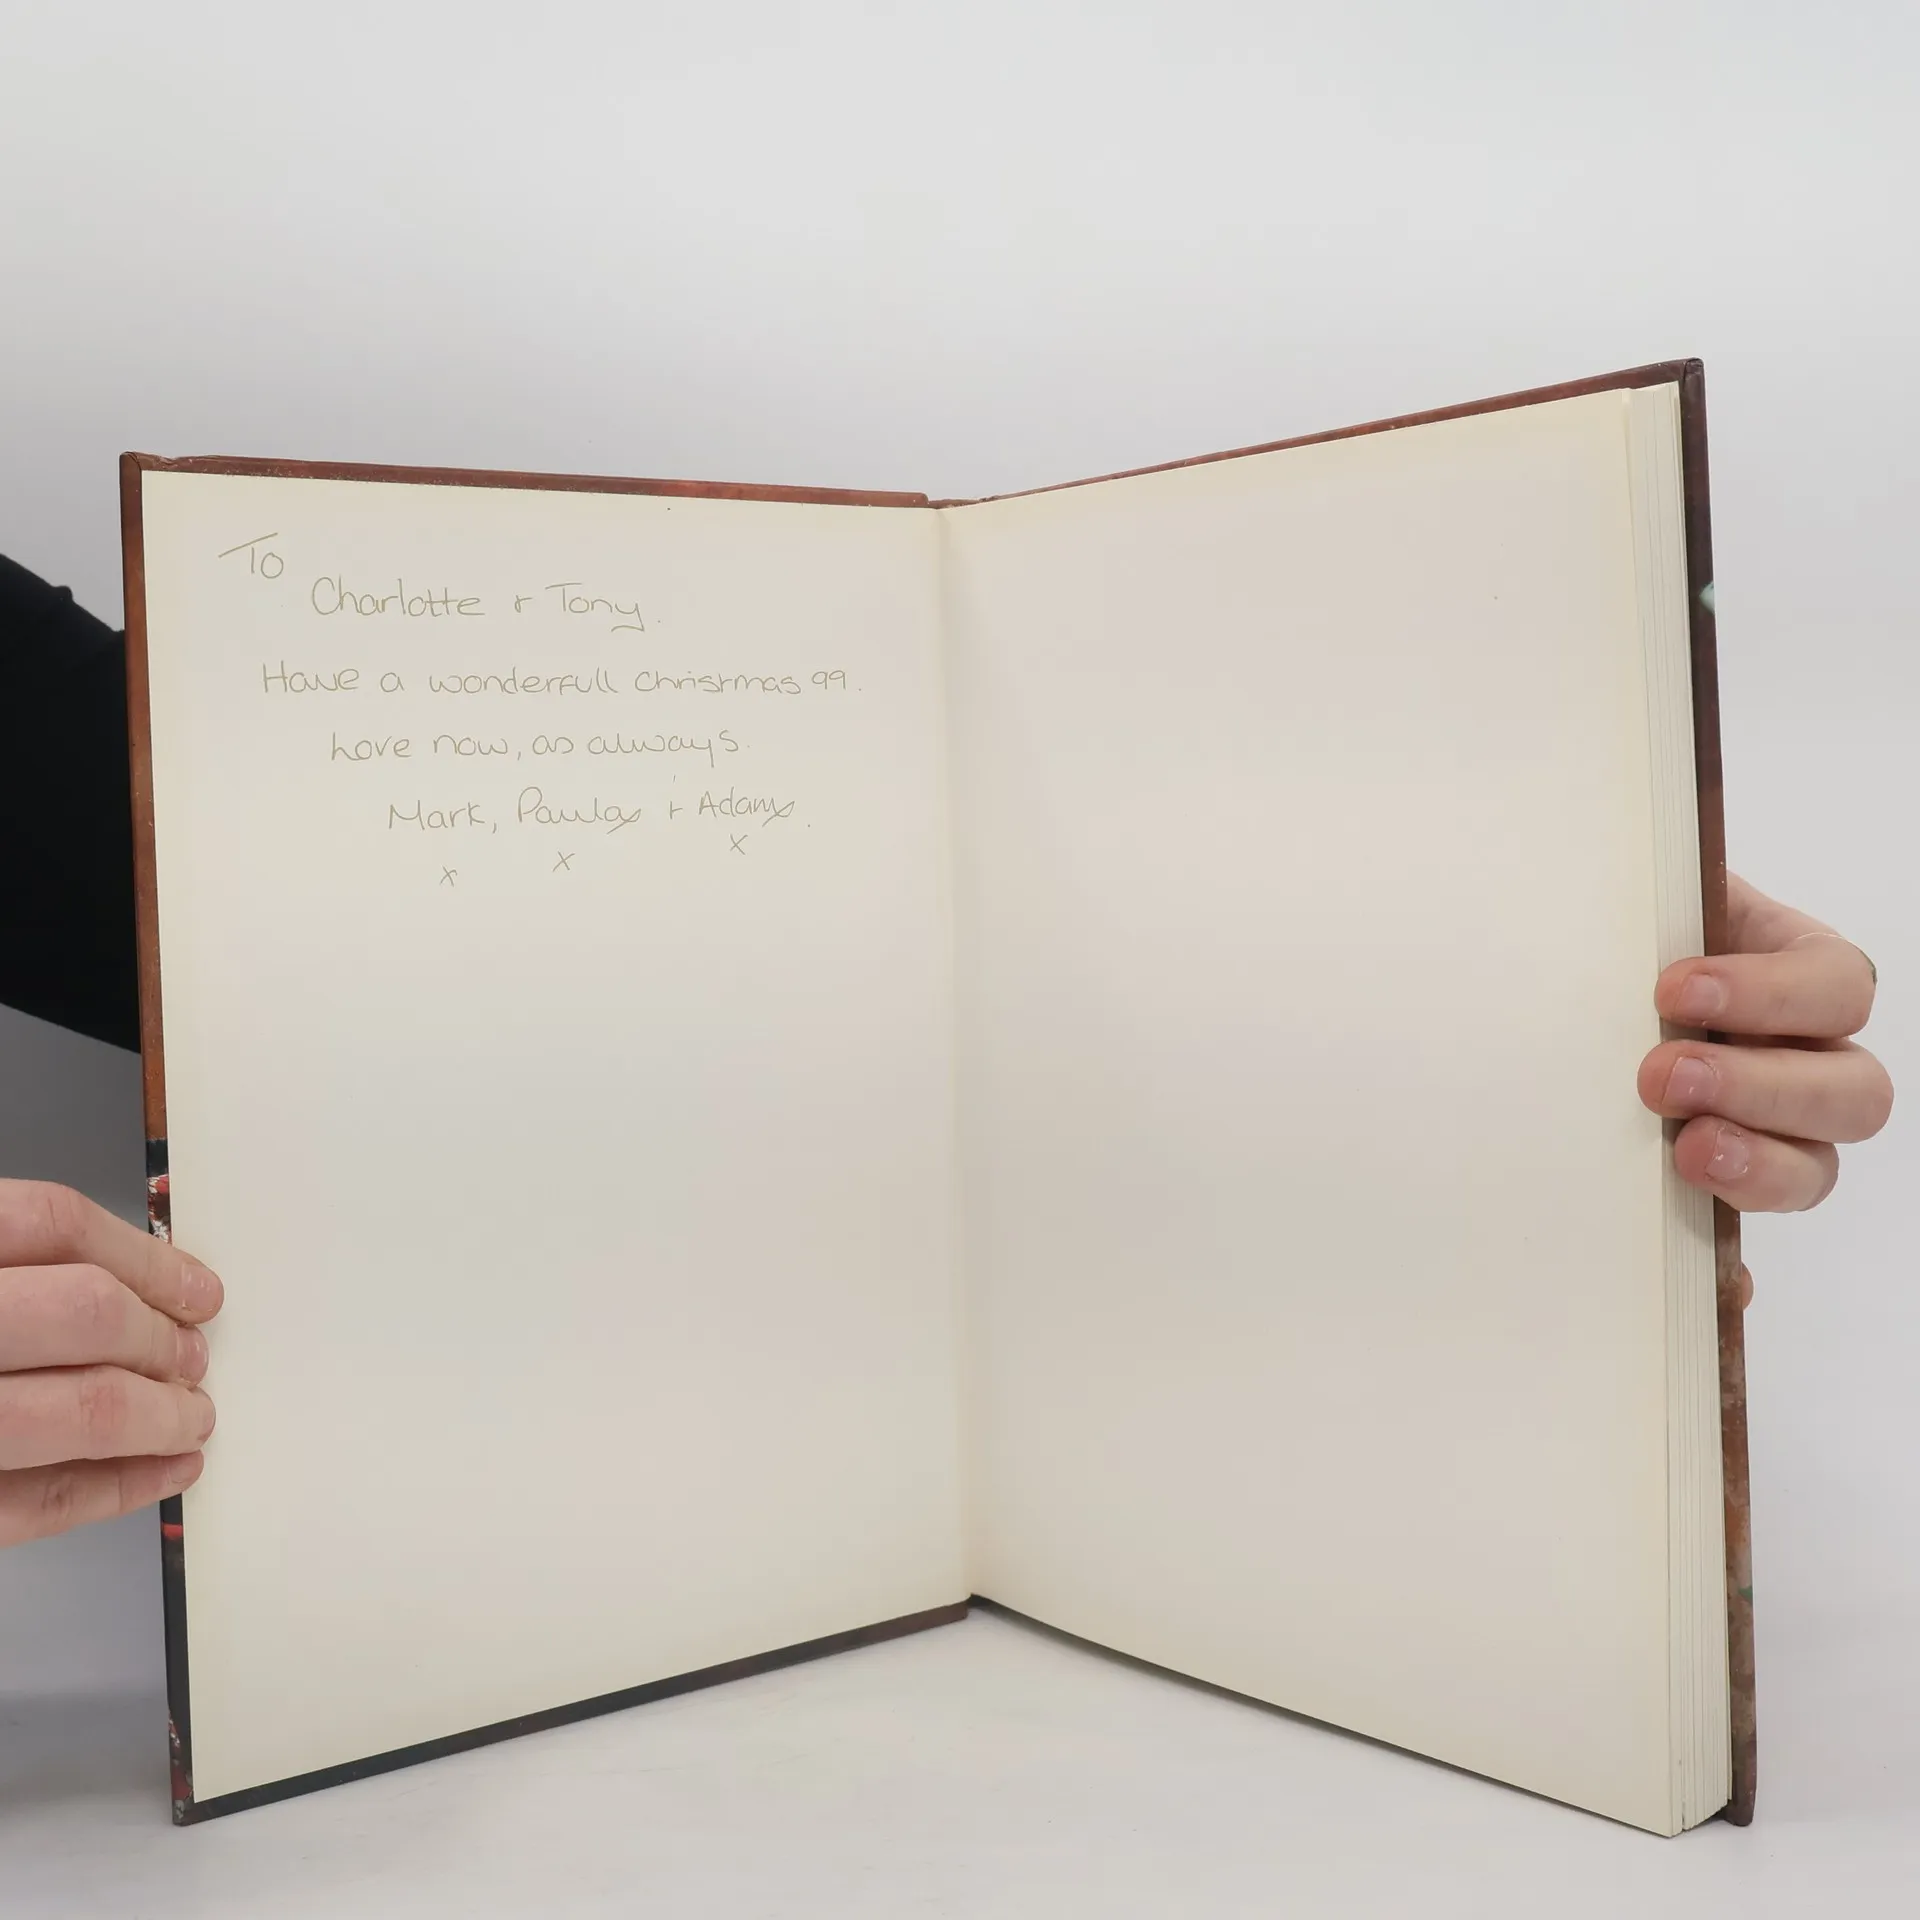 To
Charlotte & Tony.
Have a wonderfull Christmas 99.
Love now, as always.
Mark, Paula & Adam.
x x x